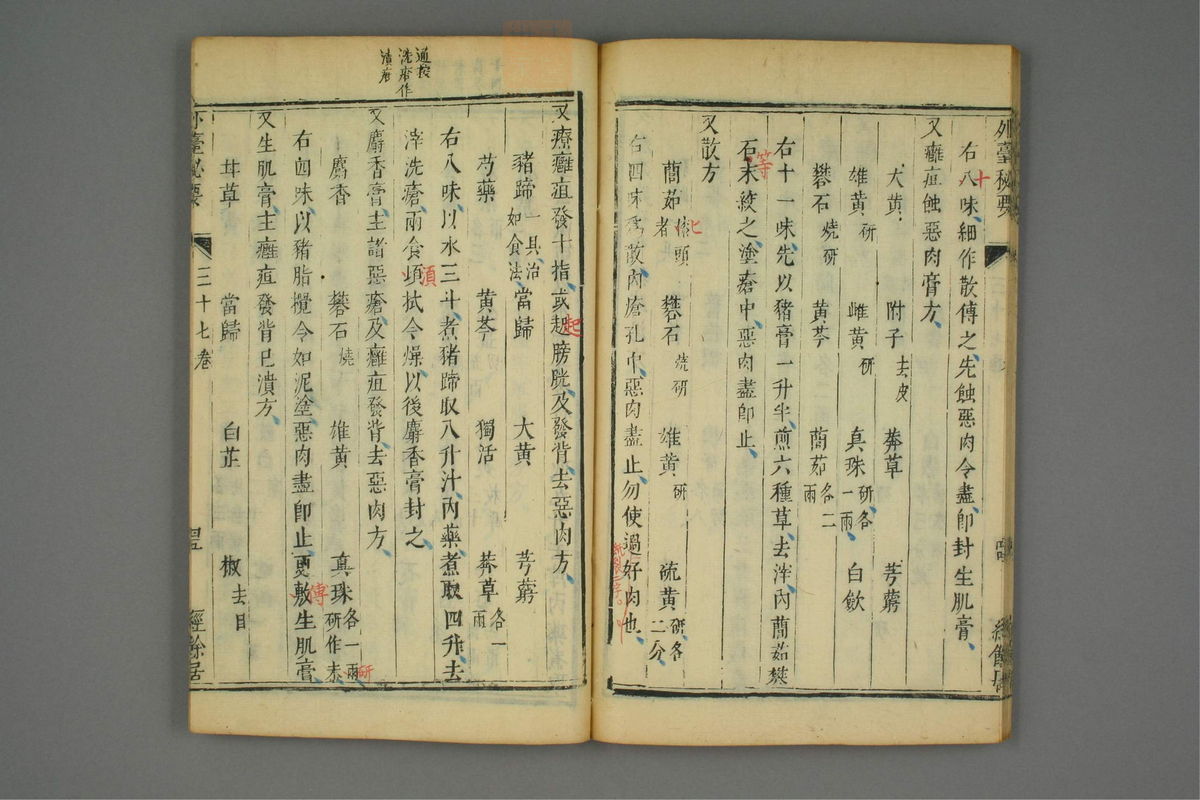 外臺秘要
右八味細作散傅之先蝕惡肉令盡卽封生肌膏
十
又癰疽蝕惡肉膏方
大黃 附子去皮 莽草 芎藭
雄黃研 雌黃研 真珠研各一兩 白歛
礬石燒研 黃芩 藺茹各二兩
右十一味先以猪膏一升半煎六種草去滓內藺茹礬
石末絞之塗瘡中惡肉盡卽止
等
又散方
藺茹漆頭者 礬石燒研 雄黃研 硫黃研各二分
七
右四味為散內瘡孔中惡肉盡止勿使過好肉也
經餘居
通按
洗瘡作
漬瘡
又療癰疽發十指或起膀胱及發背去惡肉方
起
豬蹄一具治如食法 當歸 大黃 芎藭
芍藥 黃芩 獨活 莽草各一兩
右八味以水三斗煮豬蹄取八升汁內藥煮取四升去
滓洗瘡兩食頃拭令燥以後麝香膏封之
須
又麝香膏主諸惡瘡及癰疽發背去惡肉方
麝香 礬石燒 雄黃 真珠各一兩研作末
研
右四味以豬脂攪令如泥塗惡肉盡卽止更敷生肌膏
傅
又生肌膏主癰疽發背已潰方
茸草 當歸 白芷 椒去目
外臺秘要 三十七卷 經餘居